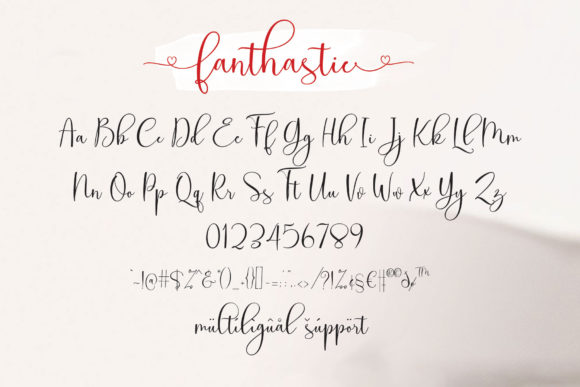 fanthastic
Aa Bb Cc Dd Ee Ff Gg Hh Ii Jj Kk Ll Mm
Nn Oo Pp Qq Rr Ss Tt Uu Vv Ww Xx Yy Zz
0123456789
`~!@#$%^&*()_+{}[]-=:;"",.<>/?!
mültílígûål šúppört